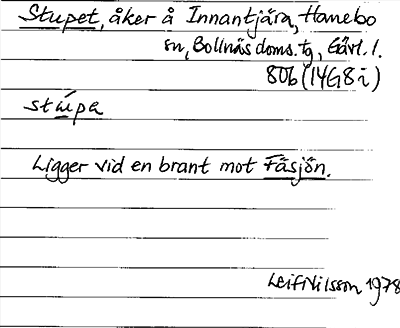 Stupet, åker å Innantjära, Hanebo
sn, Bollnäs doms. tg, Gävl. l.
80b (14G8i)
stu̇pa
Ligger vid en brant mot Fåsjön.
Leif Nilsson 1978